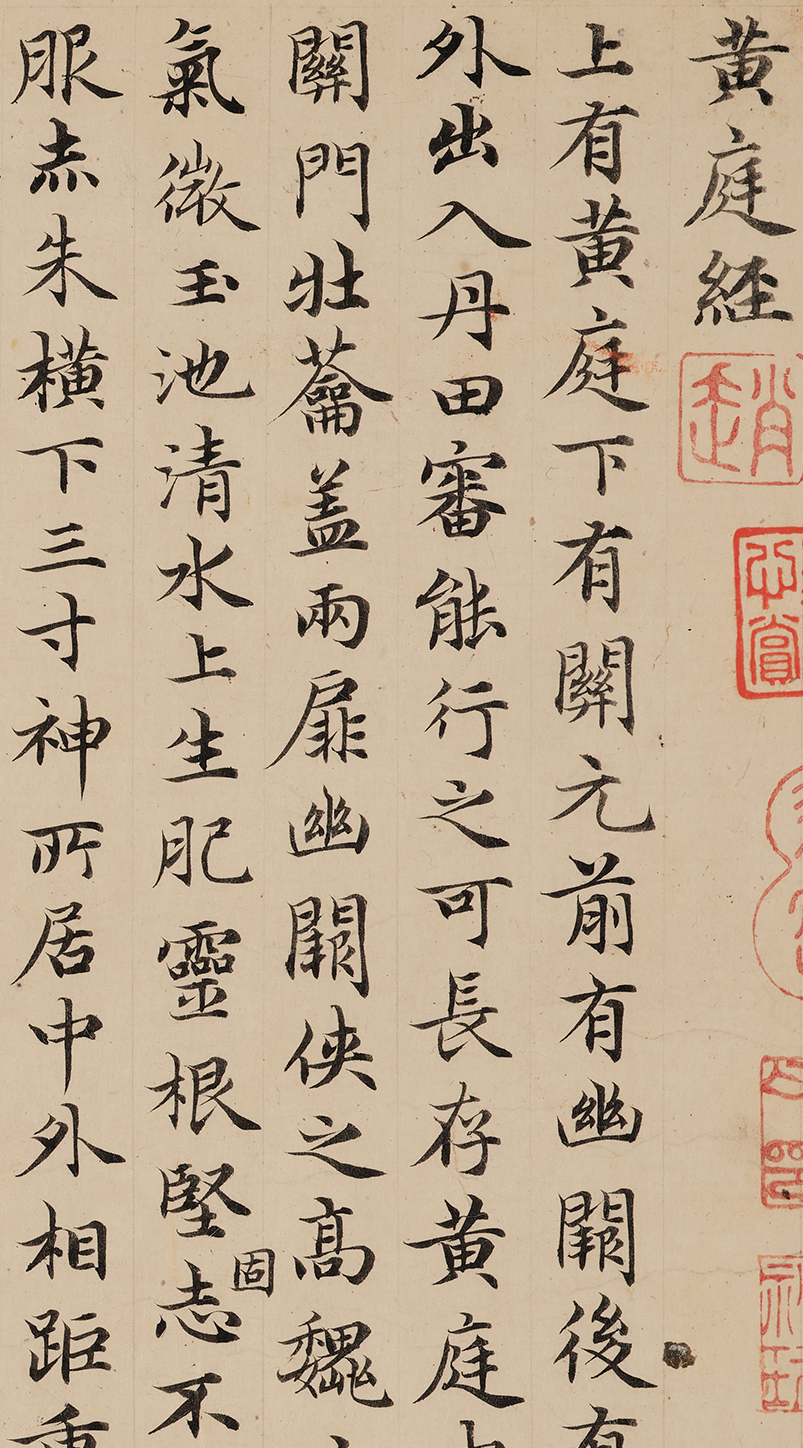 黄庭經
趙
上有黄庭下有關元前有幽闕後有
外出入丹田審能行之可長存黄庭
關門壯蘥盖兩扉幽闕俠之髙巍
氣微玉池清水上生肥靈根堅固志不
服赤朱横下三寸神所居中外相距重